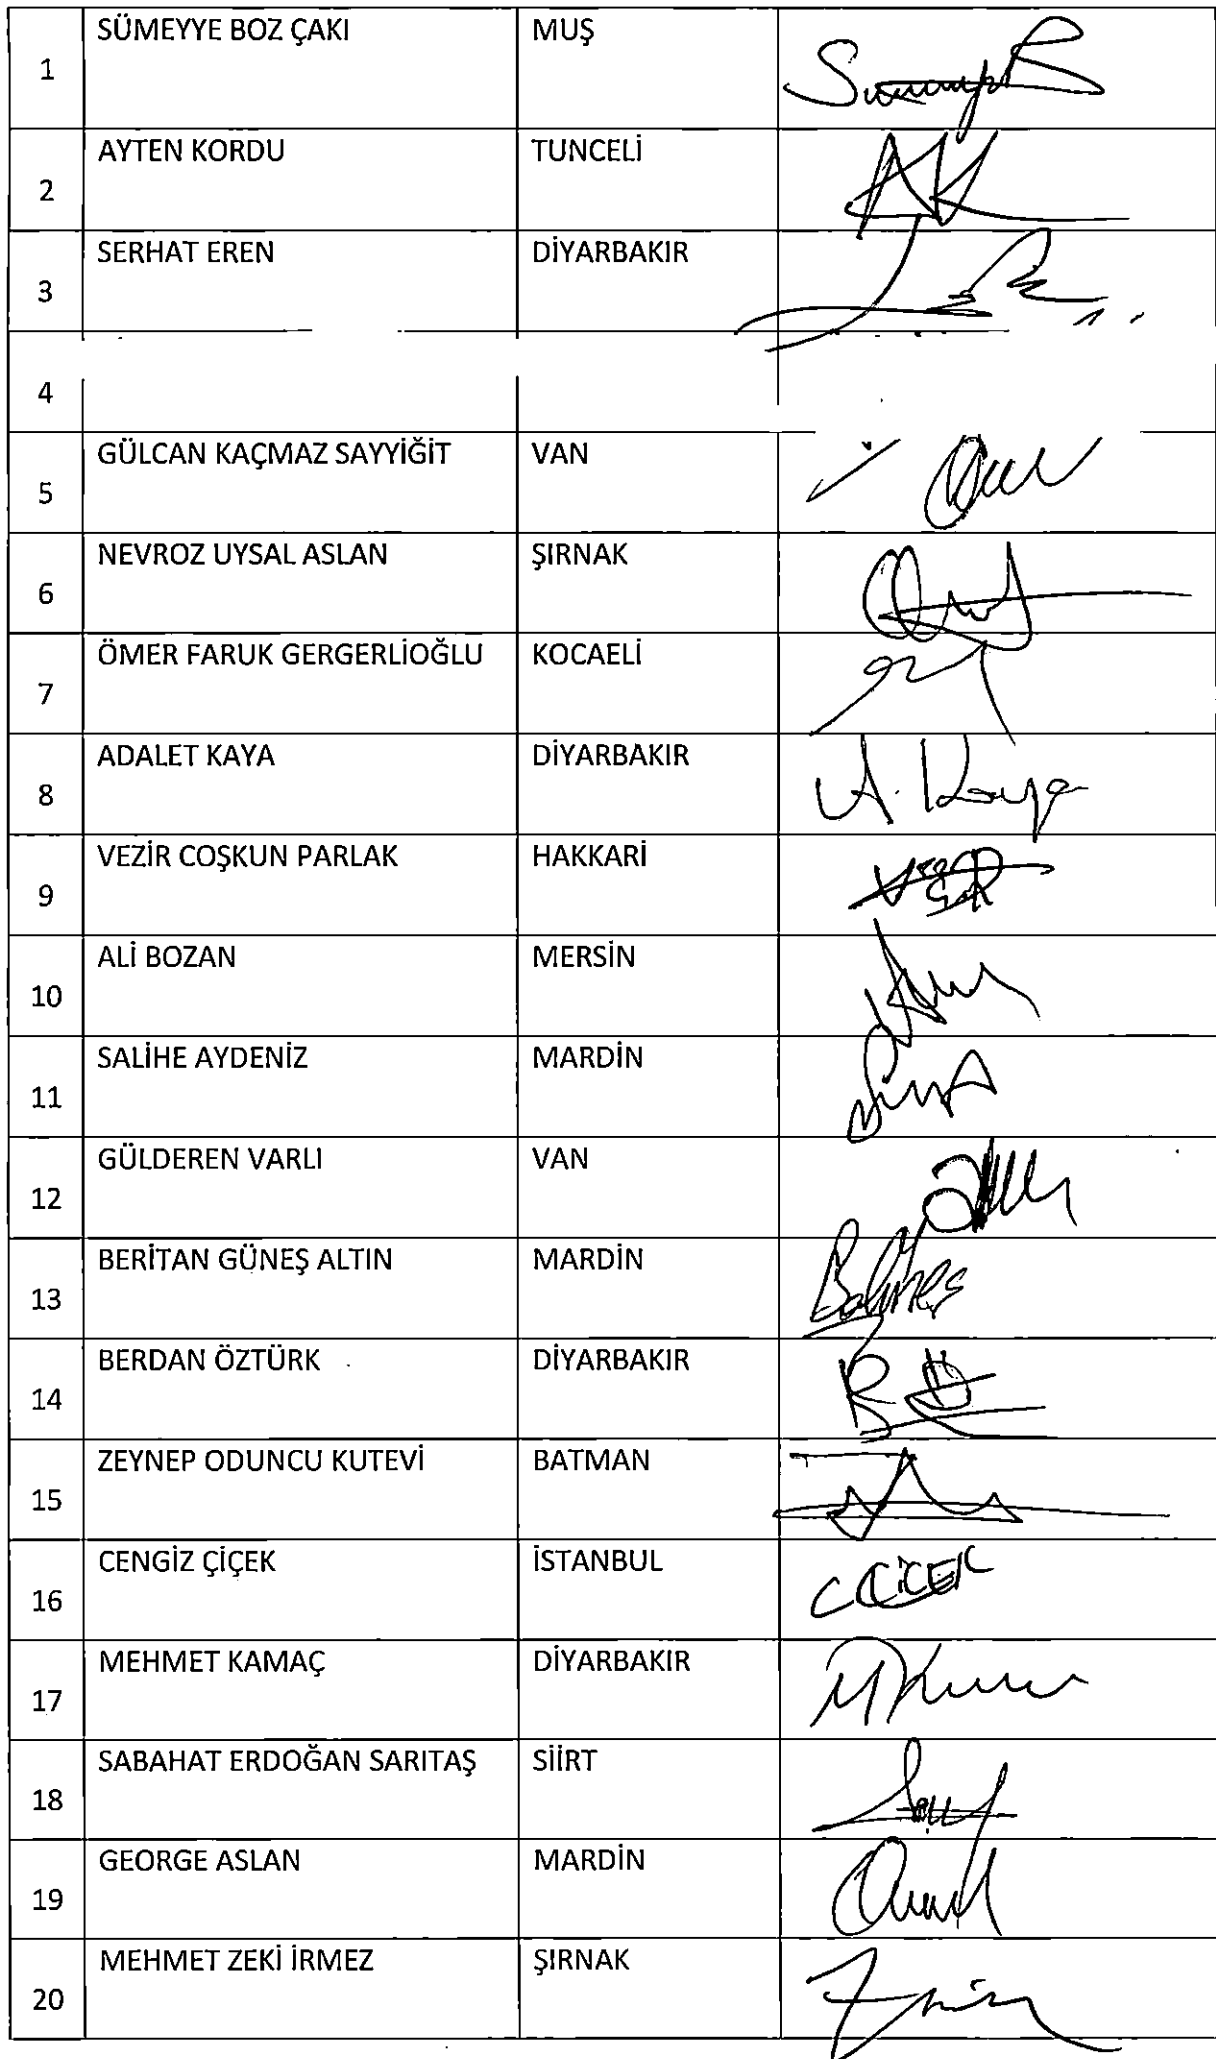 1 SÜMEYYE BOZ ÇAKI MUŞ
2 AYTEN KORDU TUNCELİ
3 SERHAT EREN DİYARBAKIR
4
5 GÜLCAN KAÇMAZ SAYYİĞİT VAN
6 NEVROZ UYSAL ASLAN ŞIRNAK
7 ÖMER FARUK GERGERLİOĞLU KOCAELİ
8 ADALET KAYA DİYARBAKIR A. Kaya
9 VEZİR COŞKUN PARLAK HAKKARİ
10 ALİ BOZAN MERSİN
11 SALİHE AYDENİZ MARDİN
12 GÜLDEREN VARLI VAN
13 BERİTAN GÜNEŞ ALTIN MARDİN
14 BERDAN ÖZTÜRK DİYARBAKIR
15 ZEYNEP ODUNCU KUTEVİ BATMAN
16 CENGİZ ÇİÇEK İSTANBUL C ÇİÇEK
17 MEHMET KAMAÇ DİYARBAKIR
18 SABAHAT ERDOĞAN SARITAŞ SİİRT
19 GEORGE ASLAN MARDİN
20 MEHMET ZEKİ İRMEZ ŞIRNAK